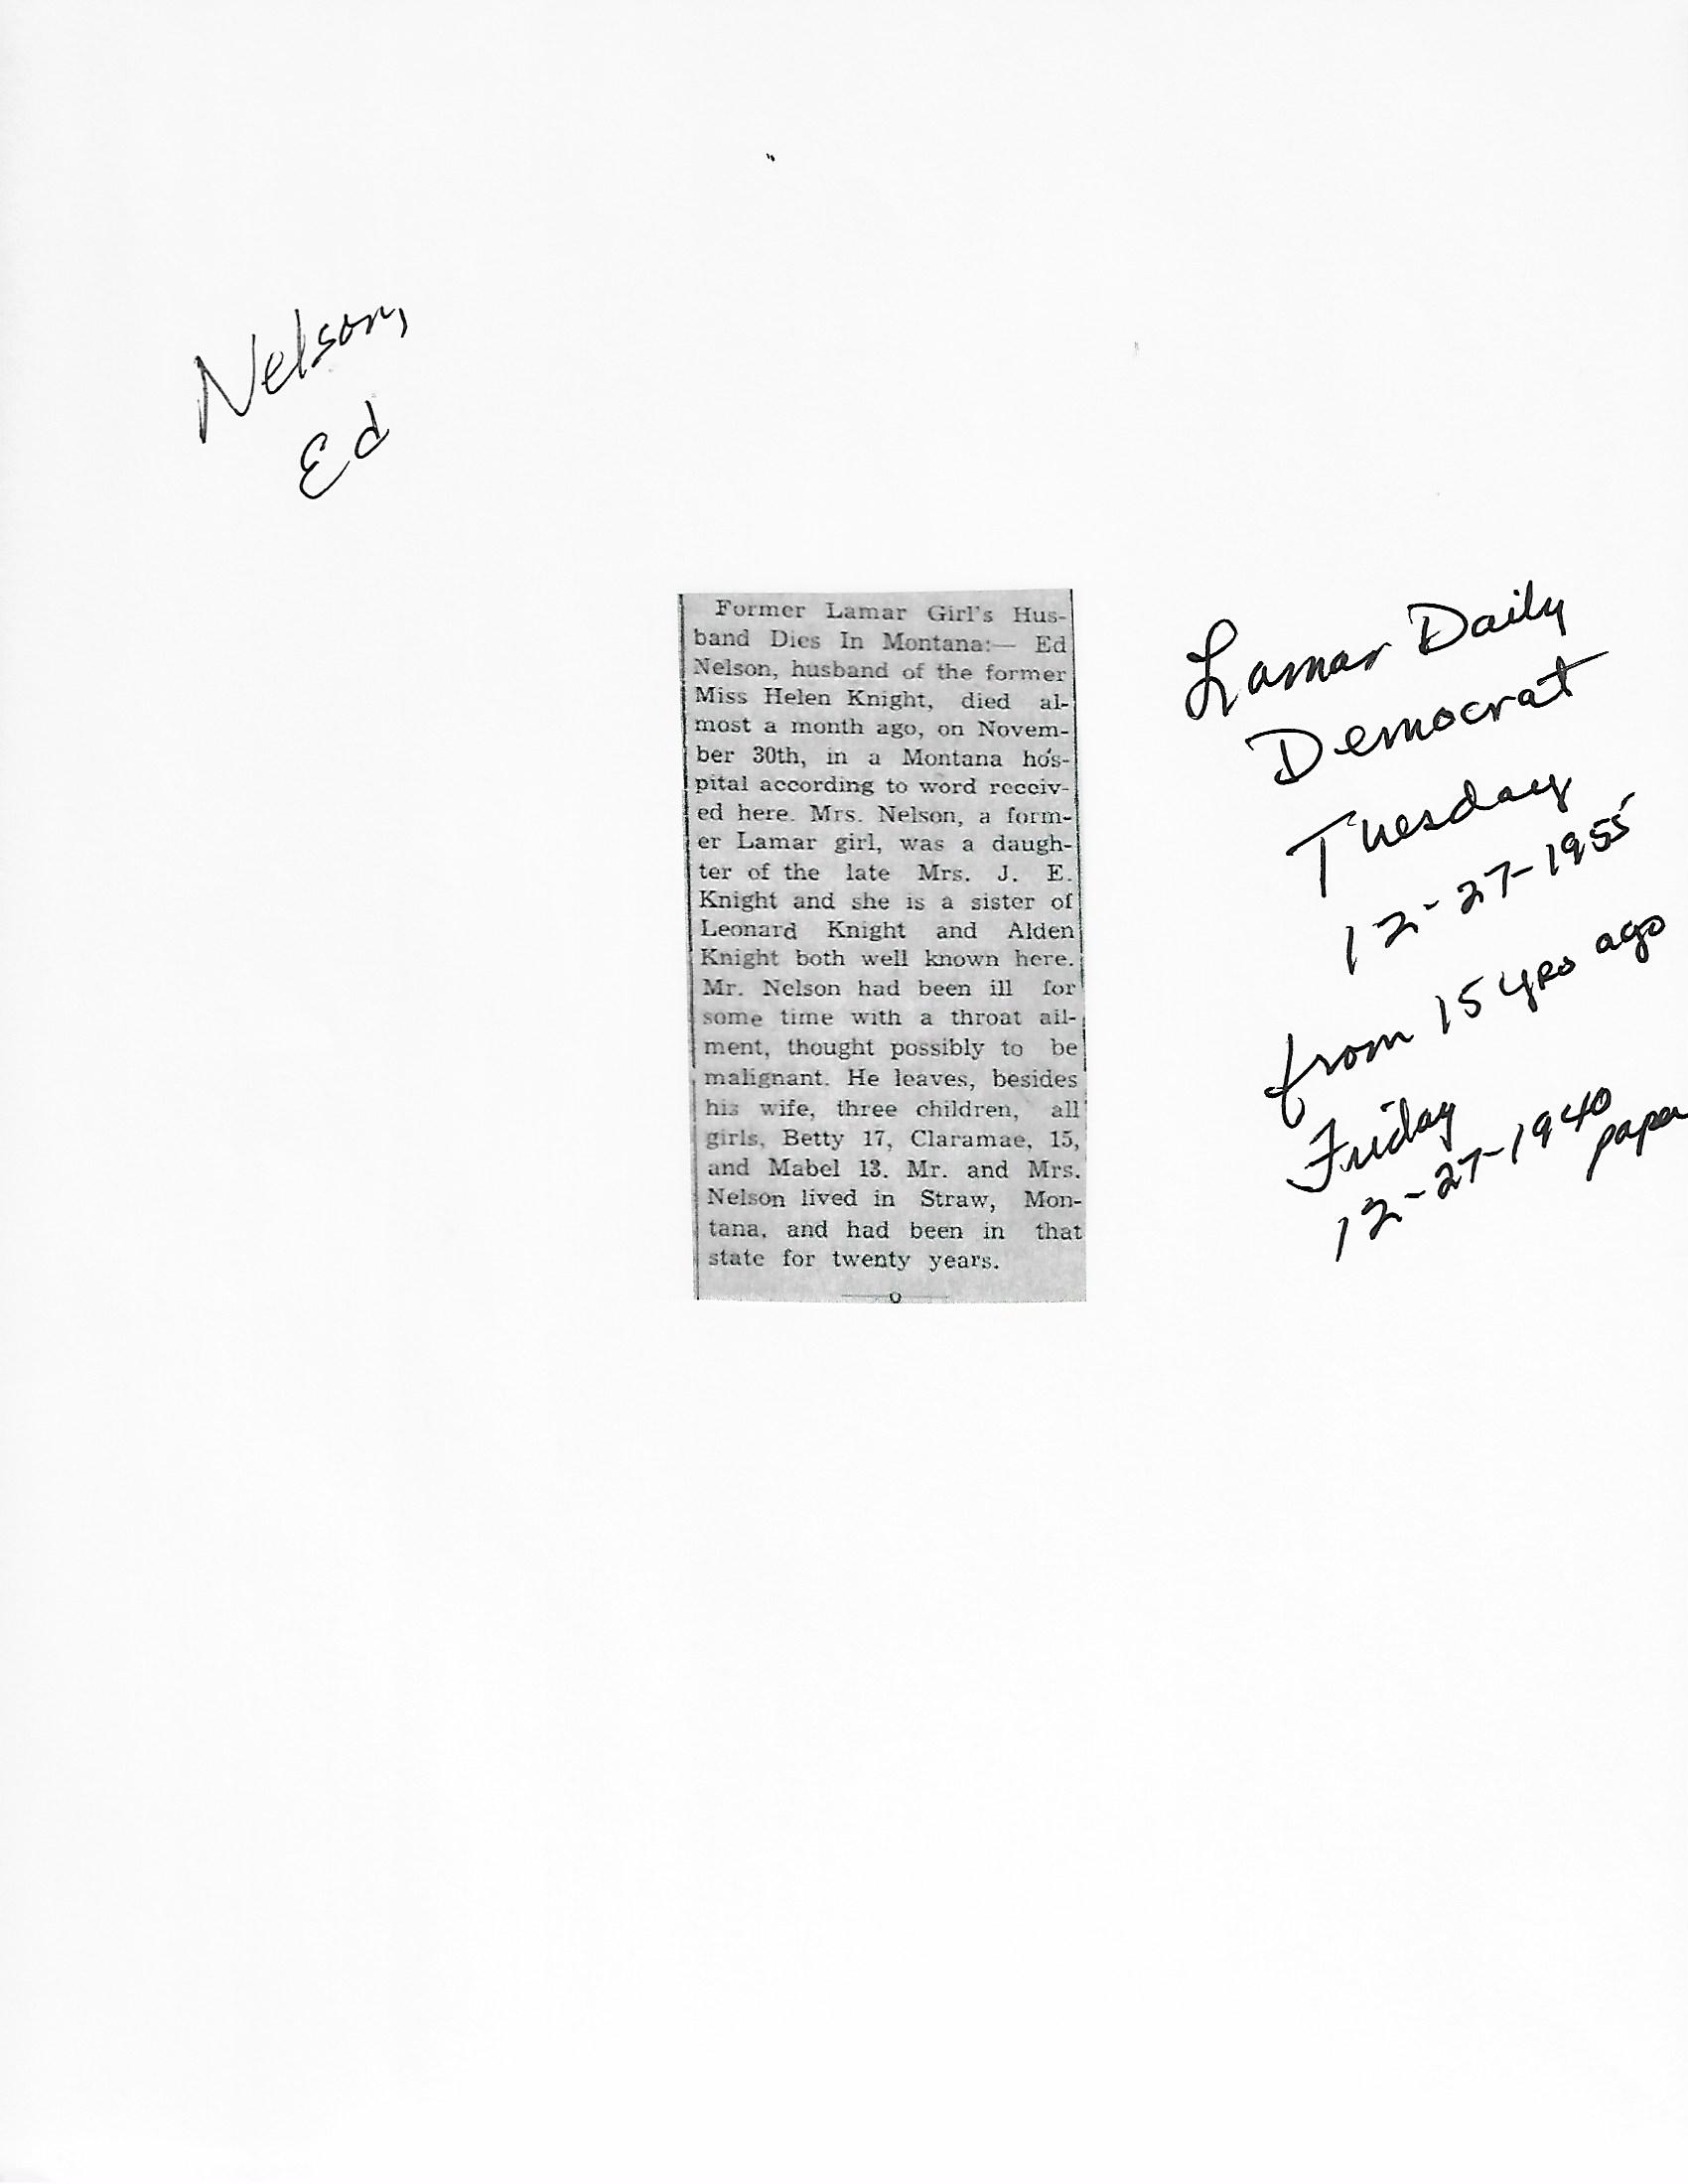 Nelson,
Ed
Former Lamar Girl's Hus-
band Dies In Montana:— Ed
Nelson, husband of the former
Miss Helen Knight, died al-
most a month ago, on Novem-
ber 30th, in a Montana hos-
pital according to word receiv-
ed here. Mrs. Nelson, a form-
er Lamar girl, was a daugh-
ter of the late Mrs. J. E.
Knight and she is a sister of
Leonard Knight and Alden
Knight both well known here.
Mr. Nelson had been ill for
some time with a throat ail-
ment, thought possibly to be
malignant. He leaves, besides
his wife, three children, all
girls, Betty 17, Claramae, 15,
and Mabel 13. Mr. and Mrs.
Nelson lived in Straw, Mon-
tana, and had been in that
state for twenty years.
Lamar Daily
Democrat
Tuesday
12-27-1955
from 15 yrs ago
Friday
12-27-1940
paper